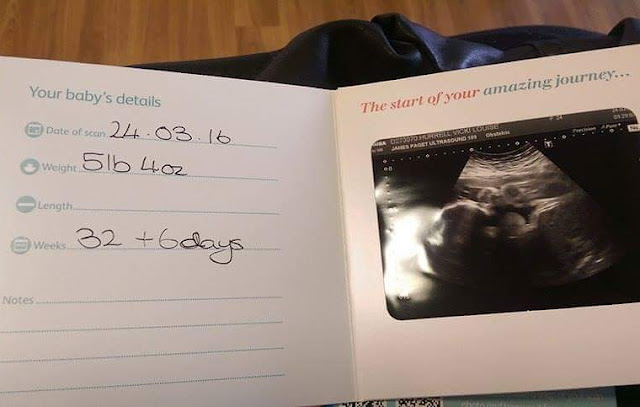 Your baby's details
Date of scan 24.03.16
Weight 5lb 4oz
Length
Weeks 32 + 6days
Notes
The start of your amazing journey...
HURRELL, VICKI LOUISE
JAMES PAGET ULTRASOUND Obstetric